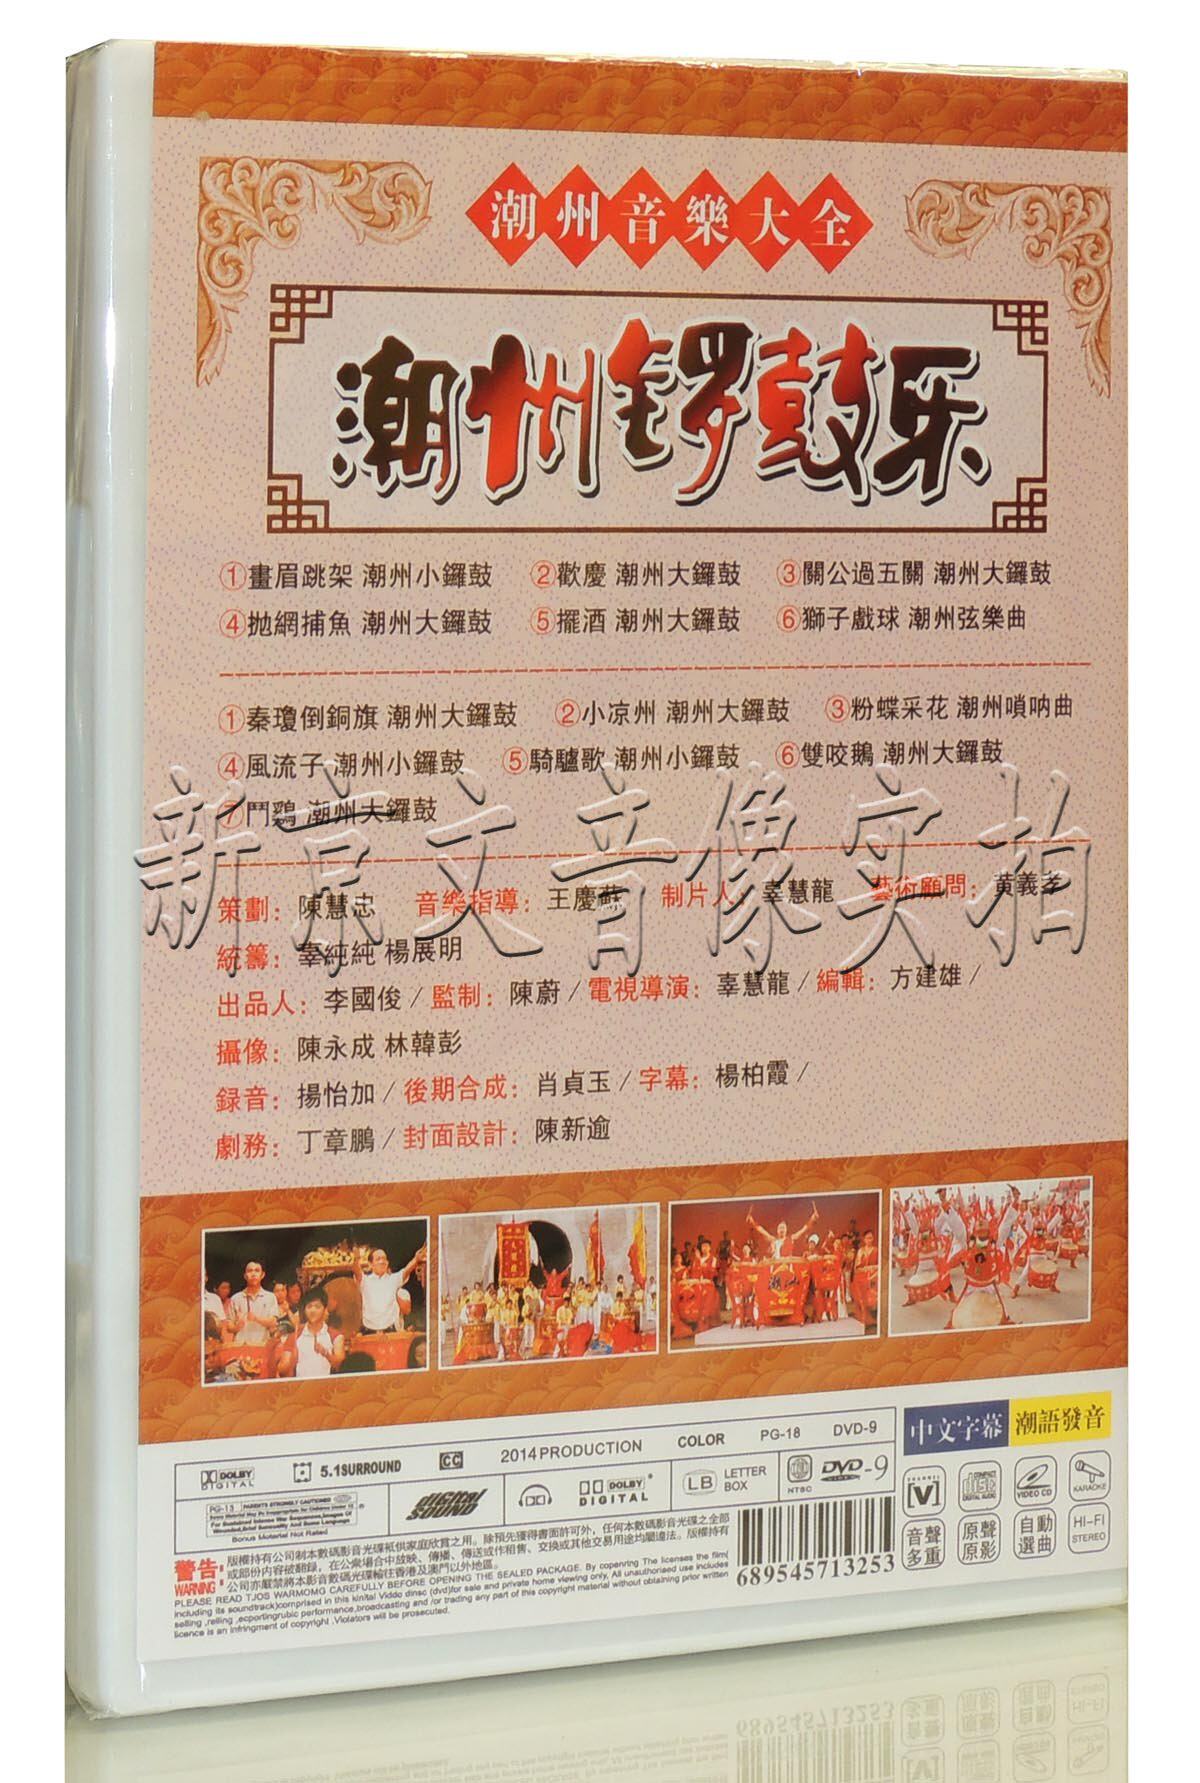 潮州音樂大全
潮州锣鼓乐
①畫眉跳架 潮州小鑼鼓 ②歡慶 潮州大鑼鼓 ③關公過五關 潮州大鑼鼓
④抛網捕魚 潮州大鑼鼓 ⑤擺酒 潮州大鑼鼓 ⑥獅子戲球 潮州弦樂曲
①秦瓊倒銅旗 潮州大鑼鼓 ②小凉州 潮州大鑼鼓 ③粉蝶采花 潮州嗩呐曲
④風流子 潮州小鑼鼓 ⑤騎驢歌 潮州小鑼鼓 ⑥雙咬鵝 潮州大鑼鼓
⑦鬥鷄 潮州大鑼鼓
新京文音像实拍
策劃：陳慧忠 音樂指導：王慶蘇 制片人：辜慧龍 藝術顧問：黄義孝
統籌：辜純純 楊展明
出品人：李國俊 / 監制：陳蔚 / 電視導演：辜慧龍 / 編輯：方建雄 /
攝像：陳永成 林韓彭
録音：揚怡加 / 後期合成：肖貞玉 / 字幕：楊柏霞 /
劇務：丁章鵬 / 封面設計：陳新逾
DOLBY DIGITAL 5.1SURROUND CC 2014 PRODUCTION COLOR PG-18 DVD-9
中文字幕 潮語發音
PG-13 PARENTS STRONGLY CAUTIONED
Bonus Material Not Rated
digital SOUND
DOLBY DIGITAL
LB LETTER BOX
NTSC
DVD-9
[V]
COMPACT disc DIGITAL AUDIO
VIDEO CD
KARAOKE
音聲多重
原聲原影
自動選曲
HI-FI STEREO
警告: WARNING:
版權持有公司制本數碼影音光碟衹供家庭欣賞之用。除預先獲得書面許可外，任何本數碼影音光碟之全部
或部份内容被翻録，在公衆場合中放映、傳播、傳送或作租售、交換或其他交易用途均屬違法。版權持有
公司亦嚴禁將本影音數碼光碟輸往香港及澳門以外地區。
PLEASE READ TJOS WARMOMG CAREFULLY BEFORE OPENING THE SEALED PACKAGE. By copenring The licenses the film(
including its soundtrack)comprised in this kinital Viddo dinsc (dvd)for sale and private home viewing only, All unauthorised use includes
selling ,relling ,ecportingrubic performance,broadcasting and /or trading any part of this copyright material without obtaining prior written
licence is an infringment of copyright .Violators will be prosecuted.
689545713253